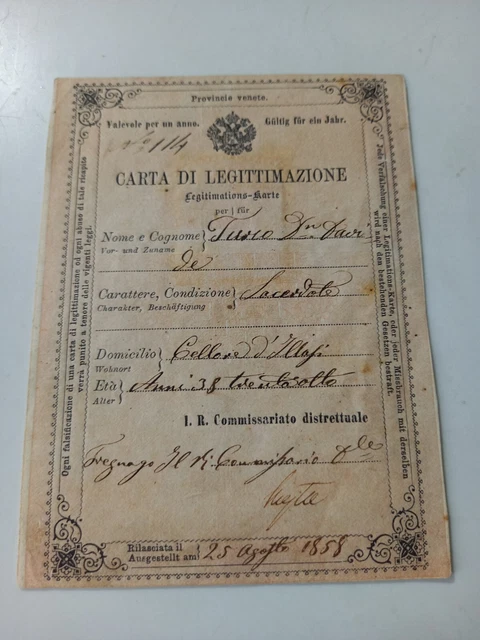 Provincie venete.
Valevole per un anno. Gültig für ein Jahr.
N° 114
CARTA DI LEGITTIMAZIONE
Legitimations-Karte
per | für
Nome e Cognome Turco Dn. Davi
Vor- und Zuname
de
Carattere, Condizione Sacerdote
Charakter, Beschäftigung
Domicilio Cellore d'Illasi
Wohnort
Età Anni 38 trentaotto
Alter
I. R. Commissariato distrettuale
Tregnago Il R. Commissario Dle
Rilasciata il
Ausgestellt am 25 Agosto 1858
Ogni falsificazione di una carta di legittimazione od ogni abuso di tale ricapito
verrà punito a tenore delle vigenti leggi.
Jede Verfälschung einer Legitimations-Karte, oder jeder Missbrauch mit derselben
wird nach den bestehenden Gesetzen bestraft.